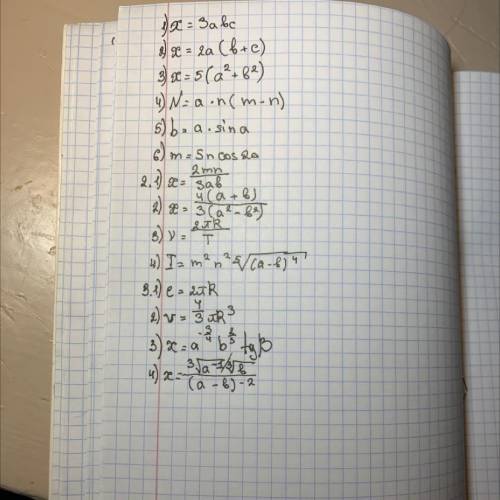 1) x = 3abc
2) x = 2a (b + c)
3) x = 5(a² + b²)
4) N = a · n (m - n)
5) b = a · sin a
6) m = 5n cos 2a
2.1) x = 2mn / 3ab
2) x = 4(a + b) / 3(a² - b²)
3) v = 2πR / T
4) I = m² n² ⁵√(a - b)⁴
3.1) e = 2πR
2) v = 4/3 πR³
3) x = a^(-3/4) b^(2/3) tg β
4) x = ³√a⁻¹ / ³√b / (a - b)⁻²